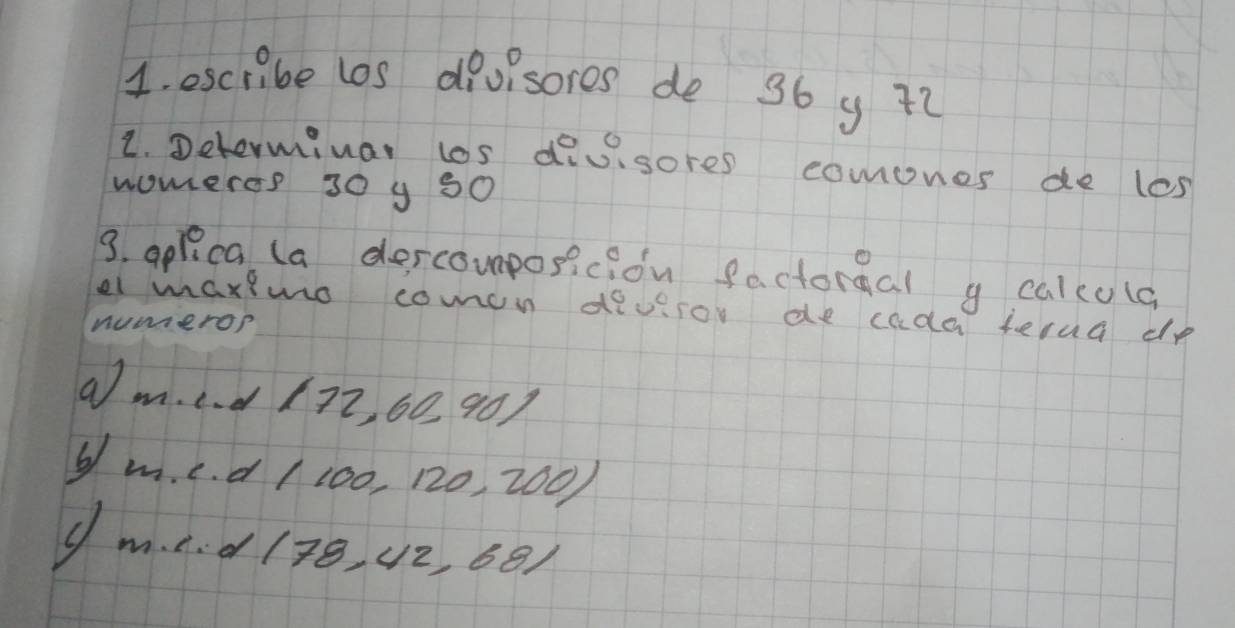 1. escribe los divisores de 36 y 72
2. Determinar los divisores comones de los
nomeros 30 y 50
3. aplica la descomposición factorial y calcula
el maximo comun divisor de cada terna de
numeros
a) m.c.d (72, 60, 90)
b) m.c.d (100, 120, 200)
c) m.c.d (78, 42, 68)